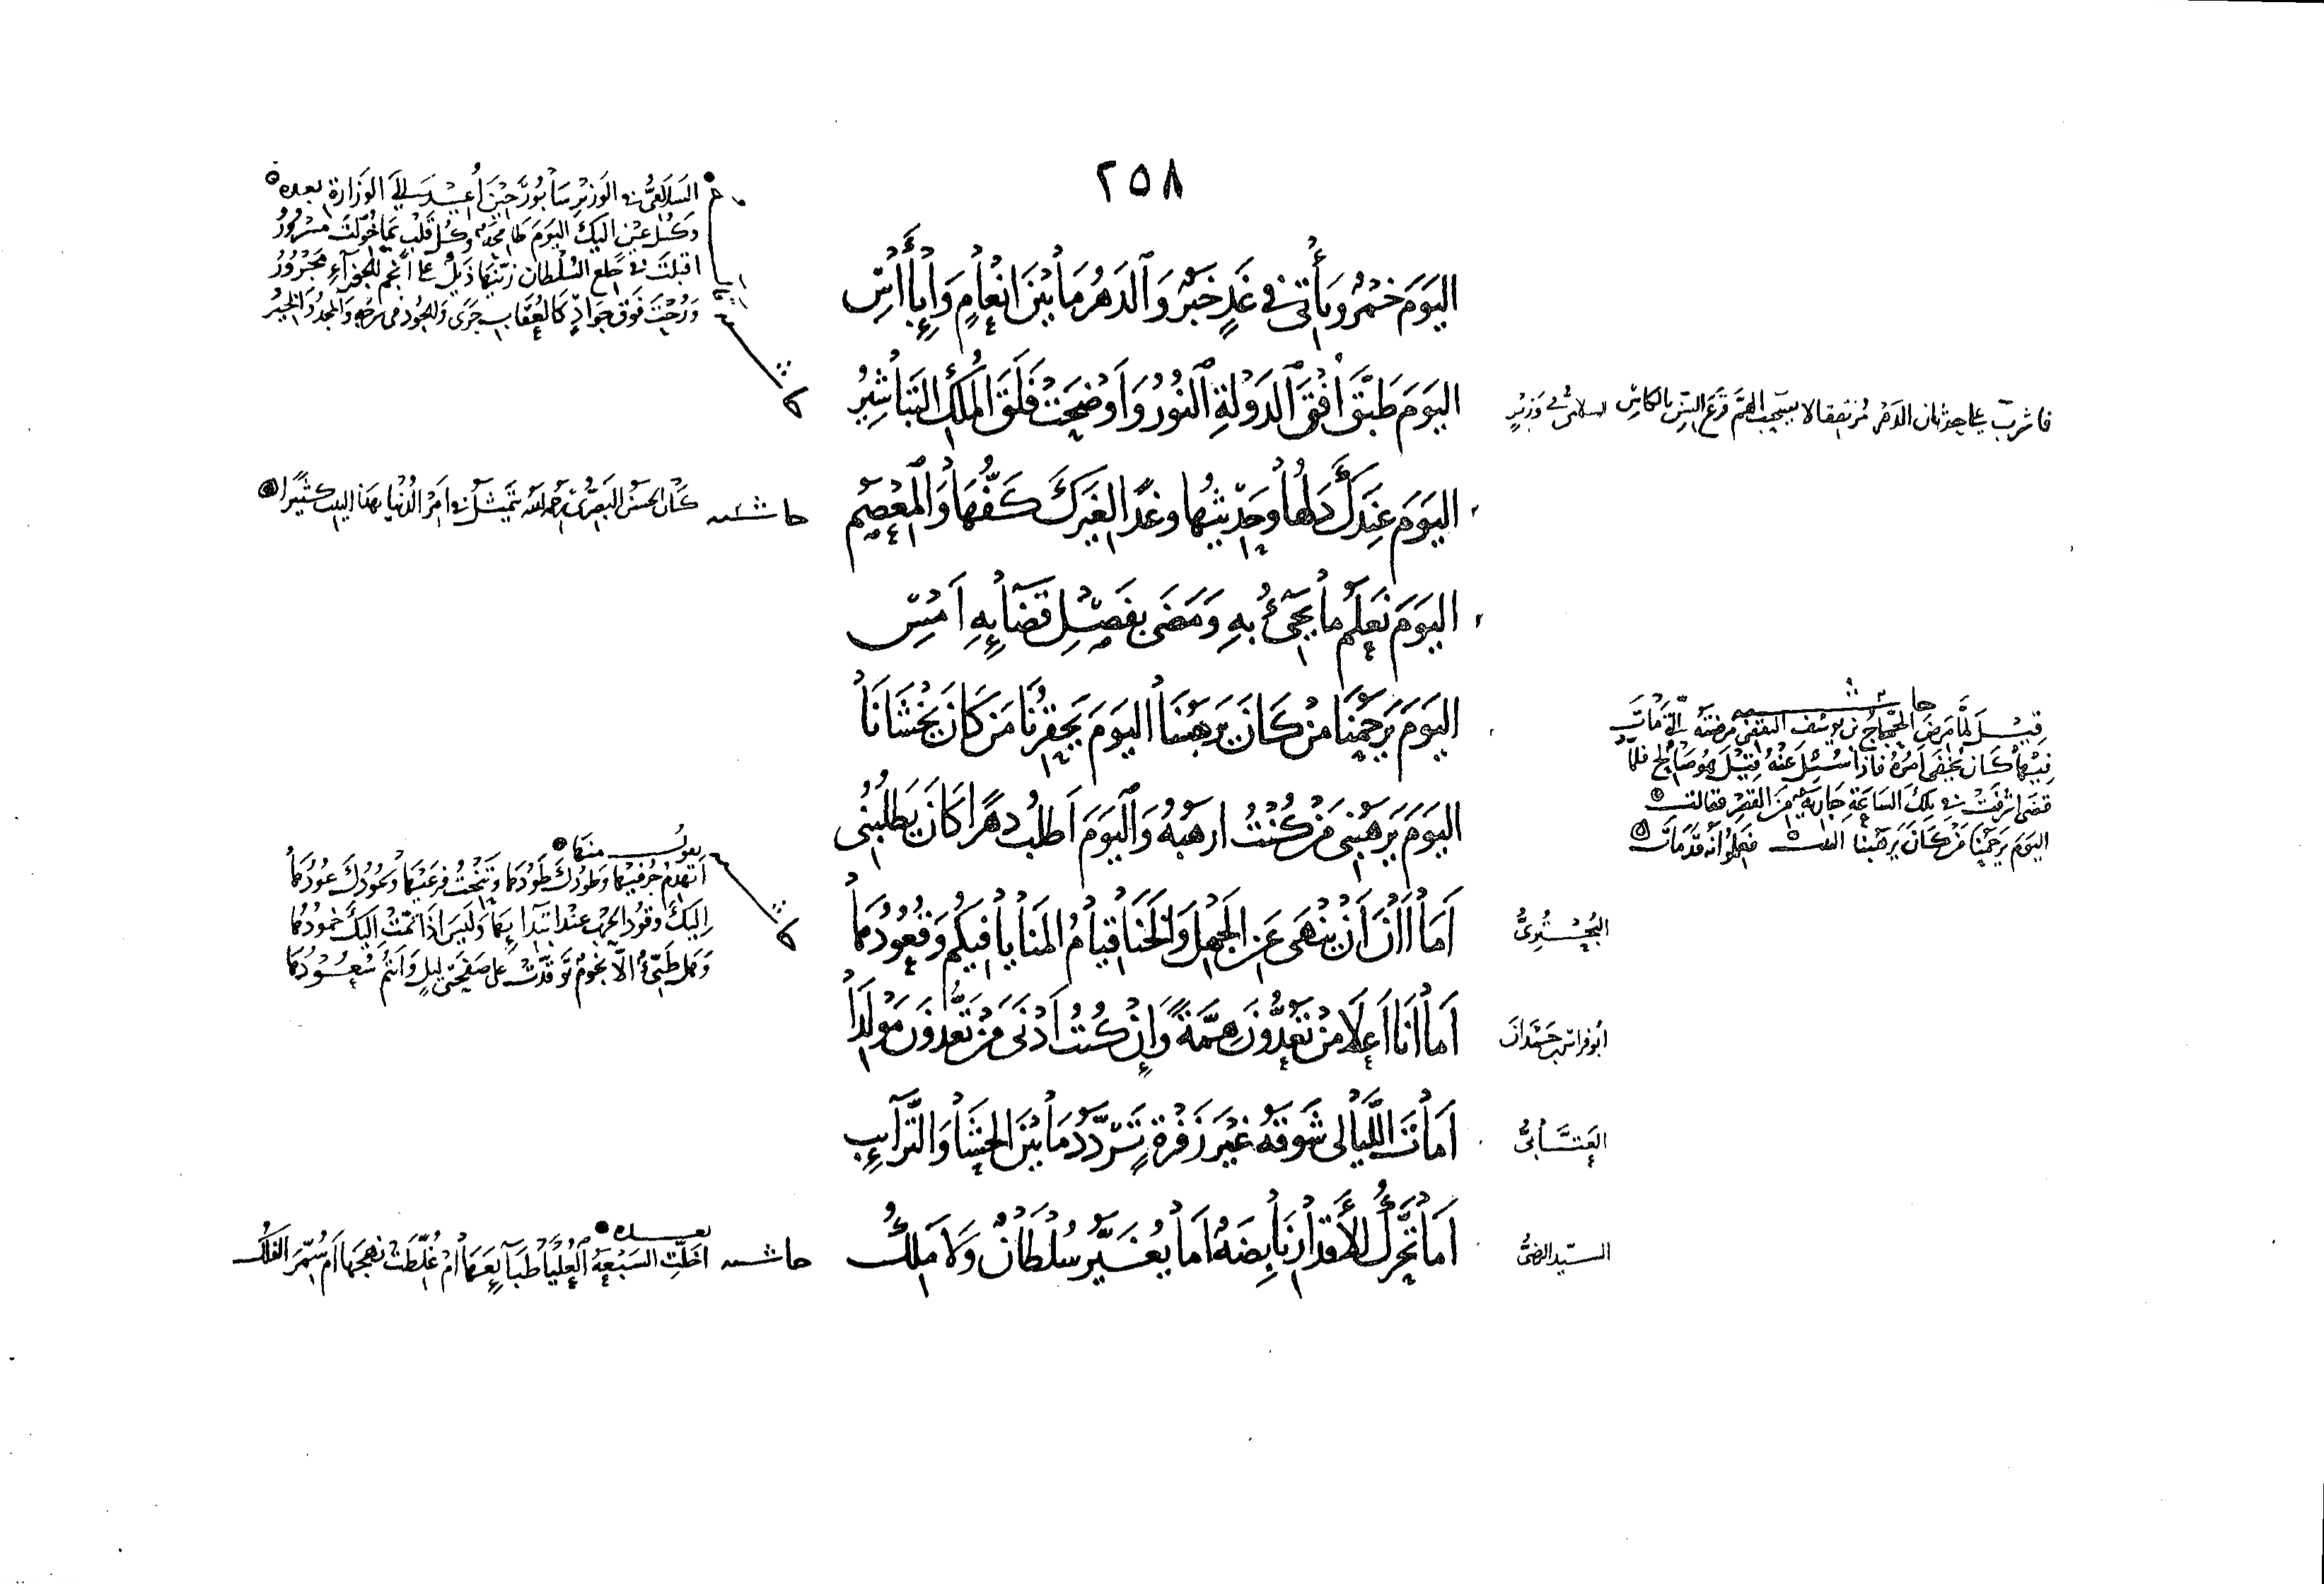 ٢٥٨
اليَومَ خَمْرٌ ويَأتي في غَدٍ خَبَرٌ وَالدَهرُ مَا بَيْنَ انْعَامٍ وَإبْأسِ
فاشرب على حدثان الدهر مرتفقا لا يصحب الهم قرع السن بالكاس
اليَومَ طَبَّقَ أُفْقَ الدَوْلَةِ النُورُ وَأوضَحَتْ فَلَقَ المُلْكِ التَبَاشِيْرُ
السَلامِيُّ في الوَزيْرِ سَابُورَ حِيْنَ أُعِيْدَ إلى الوَزارةِ بعده
وَكُلُّ عَيْنٍ اليكَ اليَومَ طامحةٌ وكُلُّ قَلبٍ بِمَا خُوِّلتَ مَسْرُورُ
اقبلتَ في خِلَعِ السُلْطانِ زيّنها ذَيلٌ على أنْجُم الجوزاءِ مَجْرُوْرُ
وَرُحْتَ فَوقَ جَوادٍ كالعُقَابِ جَرَى وَالجُودُ في سرجه وَالمجدُ وَالخِيْرُ
اليَومَ عِندَكَ دَلُّها وحَدِيثُها وغدًا لغَيرِكَ كَفُّهَا وَالمِعْصَمُ
حاشية كَانَ الحسَنُ البَصْرِيُّ رَحمه الله يتَمَثَّلُ في أمْرِ الدُنْيا بهذا البيت كثيْرًا
اليَومَ نَعلَمُ ما يَجيْءُ بهِ وَمَضَى بفَصْلِ قَضَائِهِ أمْسِ
اليَومَ يَرحَمُنَا مَنْ كَانَ يَرهَبُنَا اليَومَ يَحقِرُنَا مَن كَانَ يَخْشَانَا
حاشية
قِيْلَ لمّا مَرِضَ الحَجّاجُ بن يوسُف الثقفي مرضَتَهُ التي مَاتَ
فِيْهَا كَانَ يُخفَى أمْرُهُ فاذَا سُئِلَ عَنْهُ قِيْلَ هُوَ صَالِحٌ فلمّا
قضَى اشرفَتْ في تلكَ السَاعَةِ جَاريَةٌ مِنَ القَصْرِ فقالت
اليَومَ يَرحَمُنا مَنْ كانَ يَرهَبُنا البيت فعَلِمُوا أنَّهُ قَد مَاتَ
اليَومَ يَرهَبُني مَن كُنْتُ ارهَبُهُ وَاليَومَ أطلُبُ دهرًا كَانَ يَطلُبُنى
البُحْتُرِيُّ أمَا آنَ أنْ يُنْهَى عَنِ الجَهلِ وَالخَنَا قيامُ المنَايا فيكُم وَقُعُودُهَا
يقول منها
أتهدِمُ جُرفَيْهَا وَطَودُكَ طَوْدُهَا وَتَنْحِتُ فرعَيْهَا وَعُودُكَ عُوْدُهَا
اليكَ وقُودُ الحربِ عِنْدَ ابتدَائِهَا وَلَيسَ اذَا تمّتْ اليكَ خمُودُهَا
وَهَل طَيّءٌ الّا نجومٌ تَوقَّدَتْ على صَفحَتَي ليلٍ وَأنتُم سُعُوْدُهَا
أبُو فراس بن حَمْدَان أمَا أنَا أعلَا مَنْ تَعُدُّونَ هِمَّةً وَإنْ كُنْتُ أدْنَى مَنْ تَعُدّونَ مَوْلِدَا
العَتَّابيُّ أمَاتَ اللَّيَالى شَوقَهُ غَيْرَ زَفْرةٍ تَرَدَّدُ مَا بَيْنَ الحَشَا وَالتَّرَآئِبِ
السيّد الرضيُّ أمَا تَحَرَّكُ للأقدَارِ نَابِضَةٌ أمَا يُغَيِّرُ سُلْطَانٌ وَلَا مَلِكُ
بعده
حاشية أخَلَّتِ السَبْعَةُ العُلْيَا طَبَآئِعَهَا أمْ غُلِّطَتْ نهجَها أم سُمِّرَ الفَلَكُ